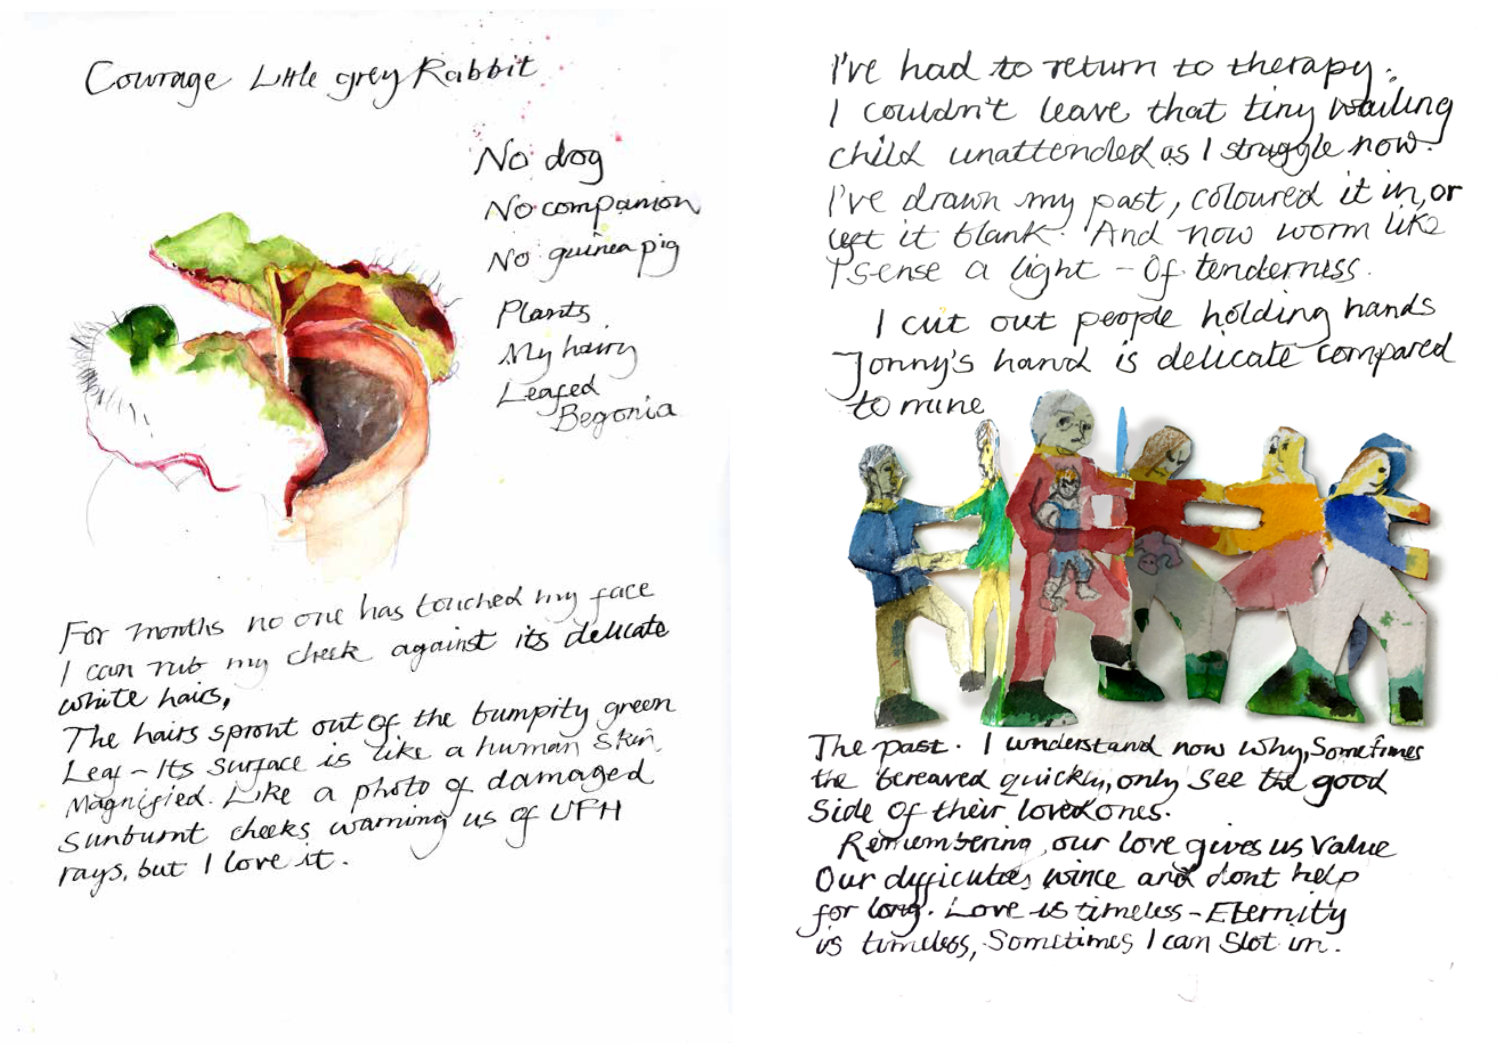 Courage Little grey Rabbit
No dog
No companion
No guinea pig
Plants
My hairy
Leafed
Begonia
For months no one has touched my face
I can rub my cheek against its delicate
white hairs,
The hairs sprout out of the bumpity green
Leaf - Its surface is like a human skin
Magnified. Like a photo of damaged
Sunburnt cheeks warning us of UFH
rays, but I love it.
I've had to return to therapy.
I couldn't leave that tiny wailing
child unattended as I struggle now.
I've drawn my past, coloured it in, or
left it blank. And now worm like
I sense a light - Of tenderness.
I cut out people holding hands
Jonny's hand is delicate compared
to mine
The past. I understand now why, Sometimes
the bereaved quickly, only see the good
Side of their loved ones.
Remembering our love gives us Value
Our difficulties wince and dont help
for long. Love is timeless - Eternity
is timeless, Sometimes I can Slot in.